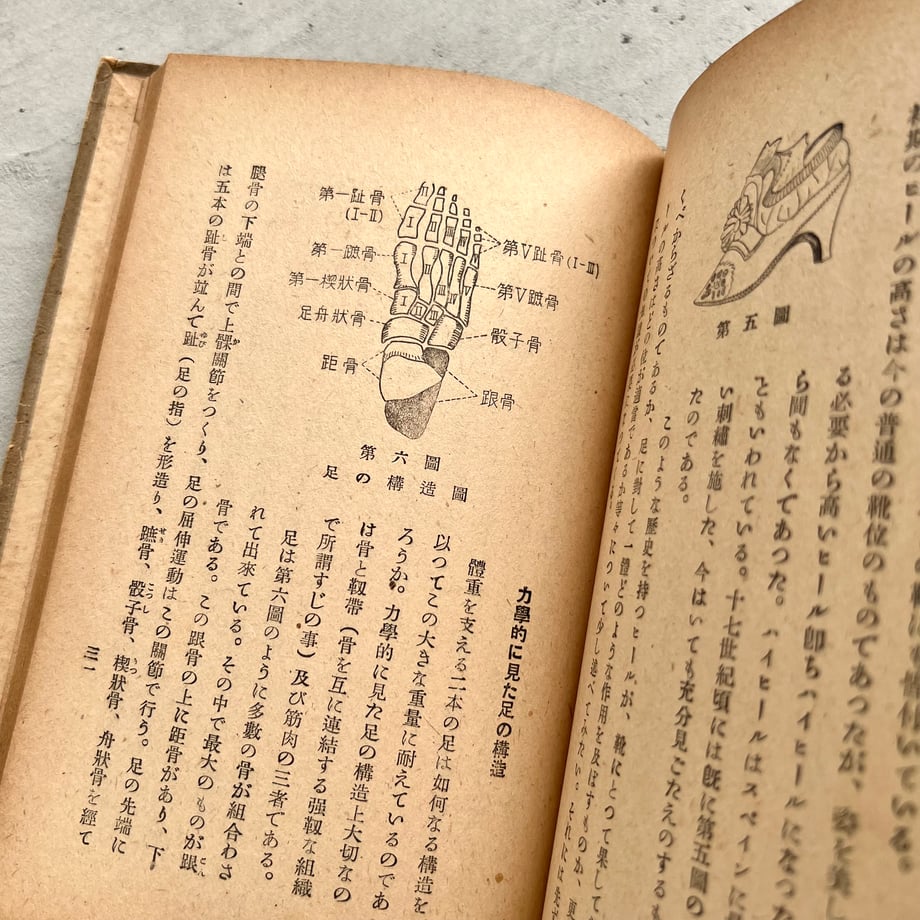 る必要から高いヒール卽ちハイヒールになつた
ら間もなくであつた。ハイヒールはスペインに
ともいわれている。十七世紀頃には旣に第五圖の
い刺繡を施した、今はいても充分見ごたえのするも
たのである。
第五圖
のヒールの高さは今の普通の靴位のものであつたが、
このような歷史を持つヒールが、靴にとつて果して
足に對して一體どのような作用を及ぼすものか、更
について少し述べてみたい。それには先
力學的に見た足の構造
體重を支える二本の足は如何なる構造を
以つてこの大きな重量に耐えているのであ
ろうか。力學的に見た足の構造上大切なの
は骨と靱帶(骨を互に連結する强靱な組織
で所謂すじの事)及び筋肉の三者である。
足は第六圖のように多數の骨が組合わさ
れて出來ている。その中で最大のものが跟
骨である。この跟骨の上に距骨があり、下
腿骨の下端との間で上髁關節をつくり、足の屈伸運動はこの關節で行う。足の先端に
は五本の趾骨が竝んで趾(足の指)を形造り、蹠骨、骰子骨、楔狀骨、舟狀骨を經て
第一趾骨
(I-II)
第一蹠骨
第一楔狀骨
足舟狀骨
距骨
第V趾骨(I-III)
第V蹠骨
骰子骨
跟骨
第六圖
足の構造圖
三一